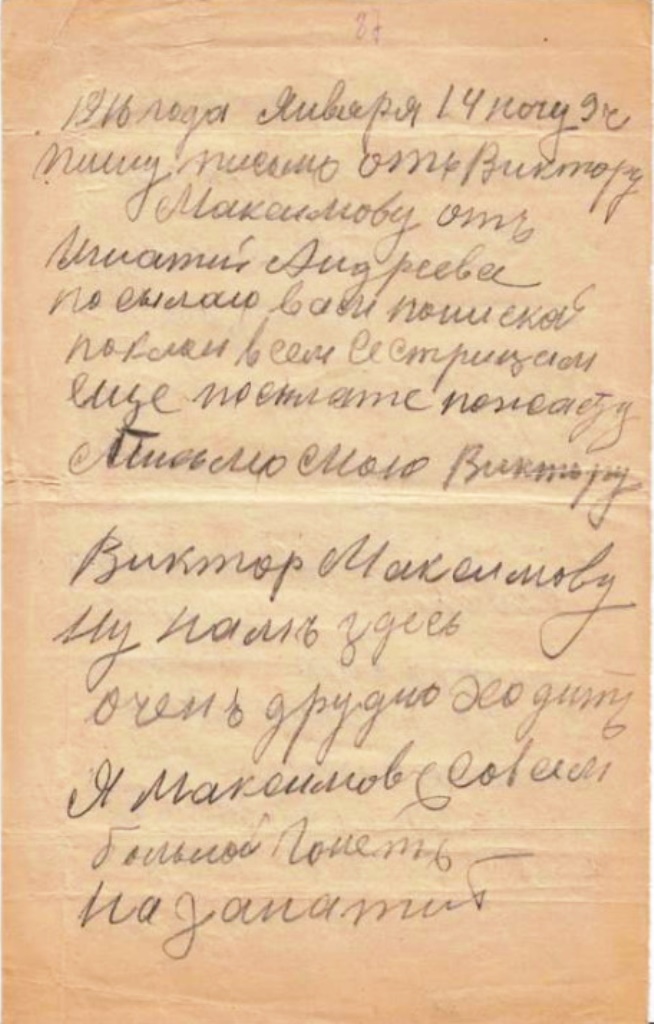 87
1916 года Января 14 ночу 9 ч
пишу письмо отъ Виктору
Максимову отъ
Игнатий Андреева
посылаю вам
поклон всем сестрицам
еще посылате пожалсту
писмо мою Виктору
Виктор Максимову
ну намъ здесь
очень друдно ходить
Я Максимовъ совсем
больной гонетъ
на занатий